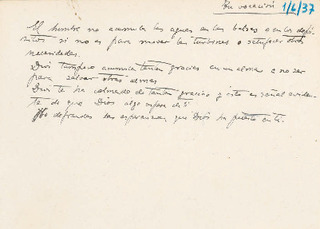 Tu vocación 1/6/37
El hombre no acumula las aguas en las balsas o en los depó-
sitos si no es para mover las turbinas o satisfacer otras
necesidades.
Dios tampoco acumula tantas gracias en un alma a no ser
para salvar otras almas
Dios te ha colmado de tantas gracias y esto es señal eviden-
te de que Dios algo espera de ti
No defraudes las esperanzas que Dios ha puesto en ti.